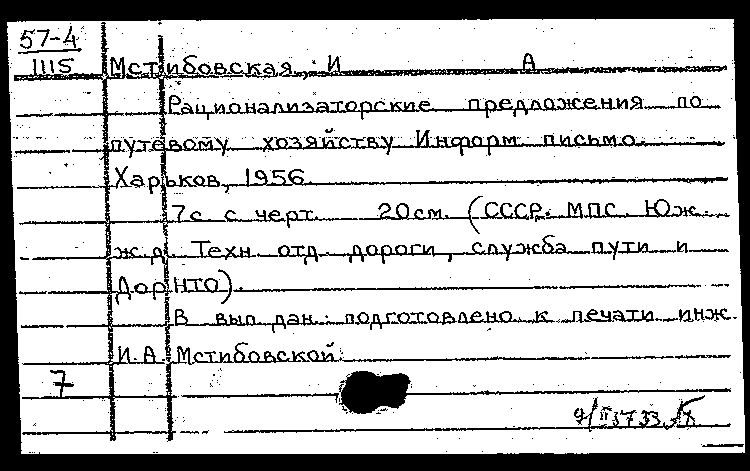 57-4
1115
Мстибовская, И А
Рационализаторские предложения по
путевому хозяйству Информ письмо.
Харьков, 1956
7с с черт. 20см. (СССР. МПС. Юж.
ж.д Техн отд дороги, служба пути и
ДорНТО).
В вып дан: подготовлено к печати инж
И.А. Мстибовской
7